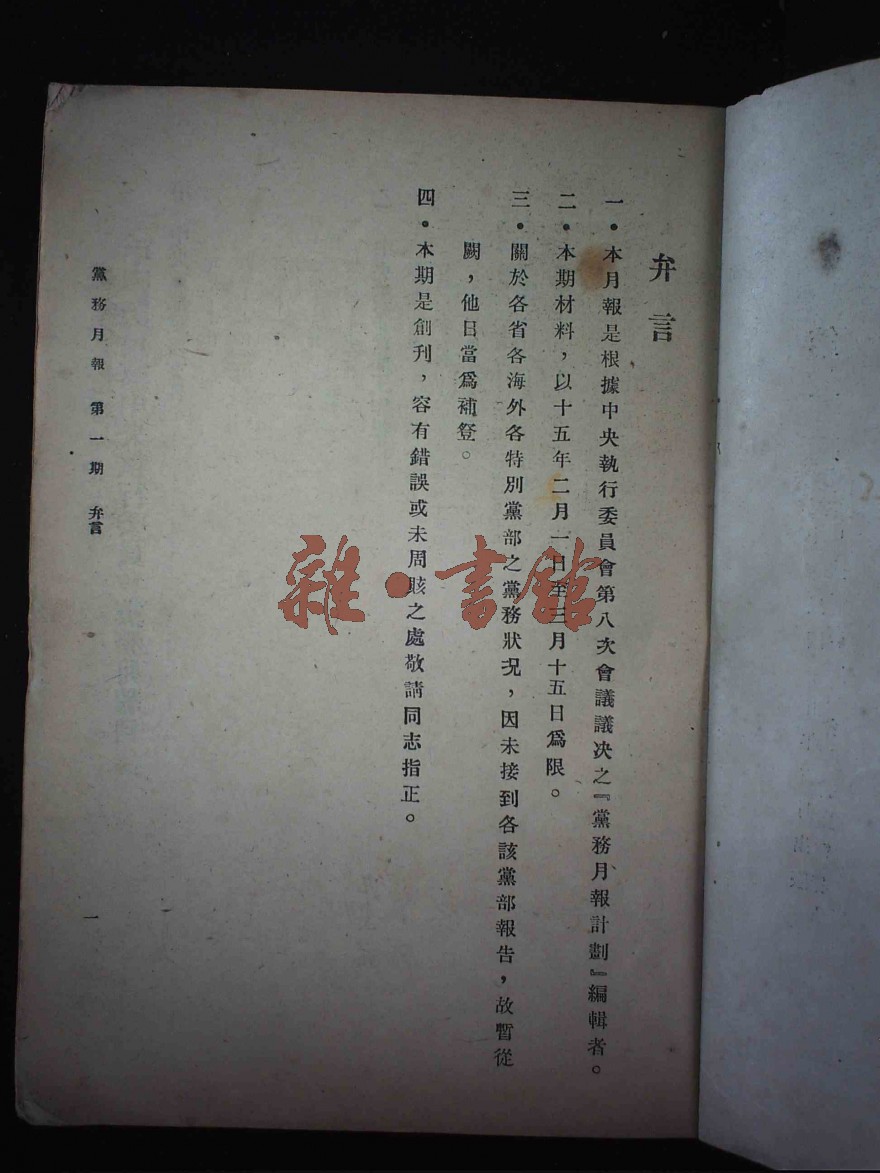 弁言
一・本月報是根據中央執行委員會第八次會議議决之『黨務月報計劃』編輯者。
二・本期材料，以十五年二月一日至三月十五日爲限。
三・關於各省各海外各特別黨部之黨務狀况，因未接到各該黨部報告，故暫從
闕，他日當爲補登。
四・本期是創刊，容有錯誤或未周賅之處敬請同志指正。
黨務月報 第一期 弁言
一
雜・書館